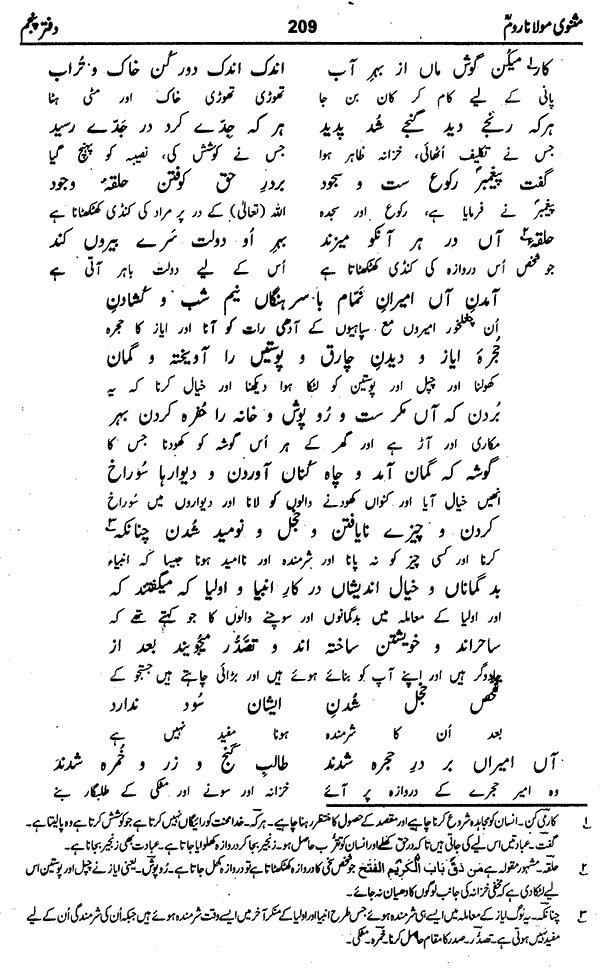 مثنوی مولانا روم 209 دفتر پنجم
کارے میکن گوش ماں از بہرِ آب اندک اندک دور کن خاک و تُراب
پانی کے لیے کام کر کان بن جا تھوڑی تھوڑی خاک اور مٹی ہٹا
ہرکہ رنجے دید گنجے شُد پدید ہر کہ جِدّے کرد در جَدّے رسید
جس نے تکلیف اُٹھائی، خزانہ ظاہر ہوا جس نے کوشش کی، نصیبہ کو پہنچ گیا
گفت پیغمبرؐ رکوع ست و سجود بر درِ حق کوفتن حلقۂ وجود
پیغمبرؐ نے فرمایا ہے، رکوع اور سجدہ اللہ (تعالیٰ) کے در پر مراد کی کنڈی کھٹکھٹانا ہے
حلقۂ٢ آں در ہر آنکو میزند بہرِ اُو دولت سَرے بیروں کند
جو شخص اُس دروازہ کی کنڈی کھٹکھٹاتا ہے اُس کے لیے دولت باہر آتی ہے
آمدنِ آں امیرانِ نمّام با سرہنگاں نیم شب و کُشادنِ
اُن چغلخور امیروں مع سپاہیوں کے آدھی رات کو آنا اور ایاز کا حجرہ
حُجرۂ ایاز و دیدنِ چارق و پوستیں را آویختہ و گمان
کھولنا اور چپل اور پوستین کو لٹکا ہوا دیکھنا اور خیال کرنا کہ یہ
بُردن کہ آں مکر ست و رُو پوش و خانہ را حُفرہ کردن بہر
مکاری اور آڑ ہے اور گھر کے ہر اُس گوشہ کو کھودنا جس کا
گوشہ کہ گمان آمد و چاہ کُناں آوردن و دیوارہا سُوراخ
انھیں خیال آیا اور کنواں کھودنے والوں کو لانا اور دیواروں میں سُوراخ
کردن و چیزے نایافتن و خجل و نومید شُدن چنانکہ٣
کرنا اور کسی چیز کو نہ پانا اور شرمندہ اور ناامید ہونا جیسا کہ انبیاء
بد گماناں و خیال اندیشاں در کارِ انبیا و اولیا کہ میگفتند کہ
اور اولیا کے معاملہ میں بدگمانوں اور سوچنے والوں کا جو کہتے تھے کہ
ساحراند و خویشتن ساختہ اند و تصدُّر میجویند بعد از
جادوگر ہیں اور اپنے آپ کو بنائے ہوئے ہیں اور بڑائی چاہتے ہیں جستجو کے
تفحّص خجل شُدنِ ایشاں سُود ندارد
بعد اُن کا شرمندہ ہونا مفید نہیں ہے
آں امیراں بر درِ حجرہ شدند طالبِ گنج و زر و خُمرہ شدند
وہ امیر حجرے کے دروازہ پر آئے خزانہ اور سونے اور مٹکی کے طلبگار بنے
١ کارے کن۔ انسان کو مجاہدہ شروع کرنا چاہیے اور مقصد کے حصول کا منتظر رہنا چاہیے۔ ہرکہ۔ خدا محنت کو رائگاں نہیں کرتا ہے جو کوشش کرتا ہے وہ پالیتا ہے۔
گفت۔ عبادتیں اس لیے کی جاتی ہیں تاکہ درِ حق کھلے اور انسان کو تقرُّب حاصل ہو۔ زنجیر بجا کر دروازہ کھلوایا جاتا ہے۔ عبادت بھی زنجیر بجانا ہے۔
٢ حلقہ۔ مشہور مقولہ ہے مَن دَقَّ بَابَ الْکَرِیْمِ انْفَتَحَ جو شخص سخی کا دروازہ کھٹکھٹاتا ہے تو دروازہ کھل جاتا ہے۔ رُوپوش۔ یعنی ایاز نے چپل اور پوستین اس
لیے لٹکا دی ہے کہ مخفی خزانہ کی جانب لوگوں کا دھیان نہ جائے۔
٣ چنانکہ۔ یہ لوگ ایاز کے معاملہ میں ایسے ہی شرمندہ ہوئے جس طرح انبیا اور اولیا کے منکر آخر میں ایسے وقت شرمندہ ہوئے ہیں جبکہ اُن کی شرمندگی اُن کے لیے
مفید نہیں ہوتی ہے۔ تصدُّر۔ صدر کا مقام حاصل کرنا۔ خُمرہ۔ مٹکی۔